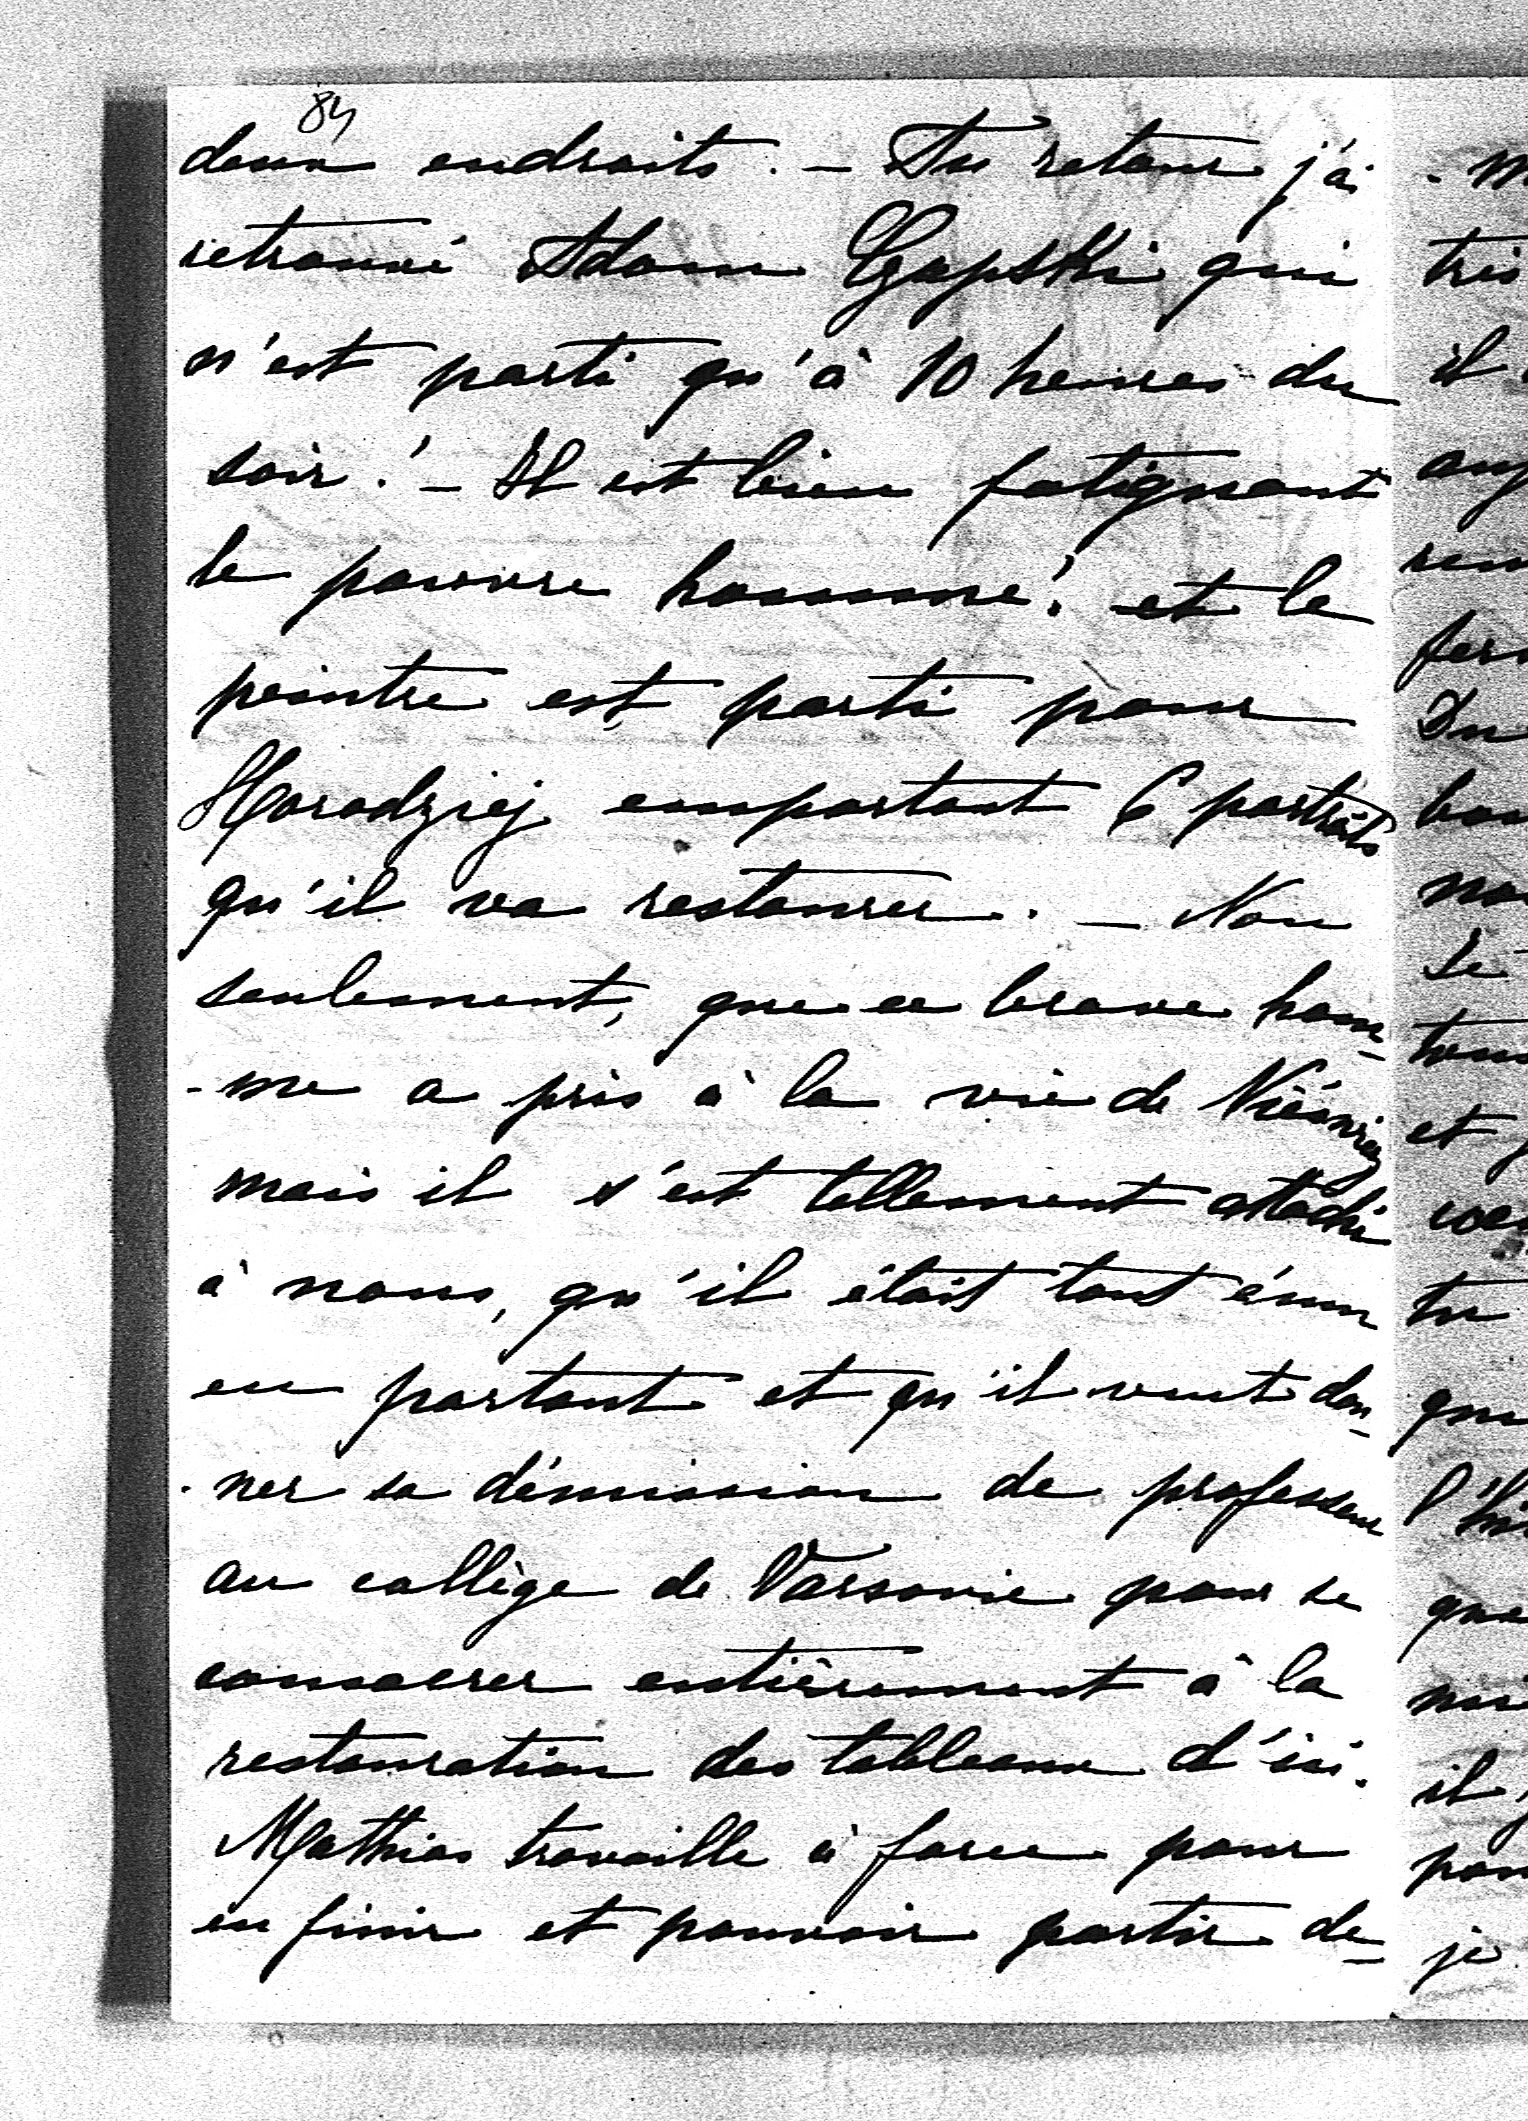 84
deux endroits. — Au retour j'ai
retrouvé Adam Czapski qui
n'est parti qu'à 10 heures du
soir! — Il est bien fatignant
le pauvre homme! et le
peintre est parti pour
Horodziej emportant 6 portraits
qu'il va restaurer. — Non
seulement, que ce brave hom-
-me a pris à la vie de Niéśviez
mais il s'est tellement attaché
à nous, qu'il était tout ému
en partant et qu'il veut don-
-ner sa démission de professeur
au collège de Varsovie pour se
consacrer entièrement à la
restauration des tableaux d'ici.
Mathias travaille à force pour
en finir et pouvoir partir de-